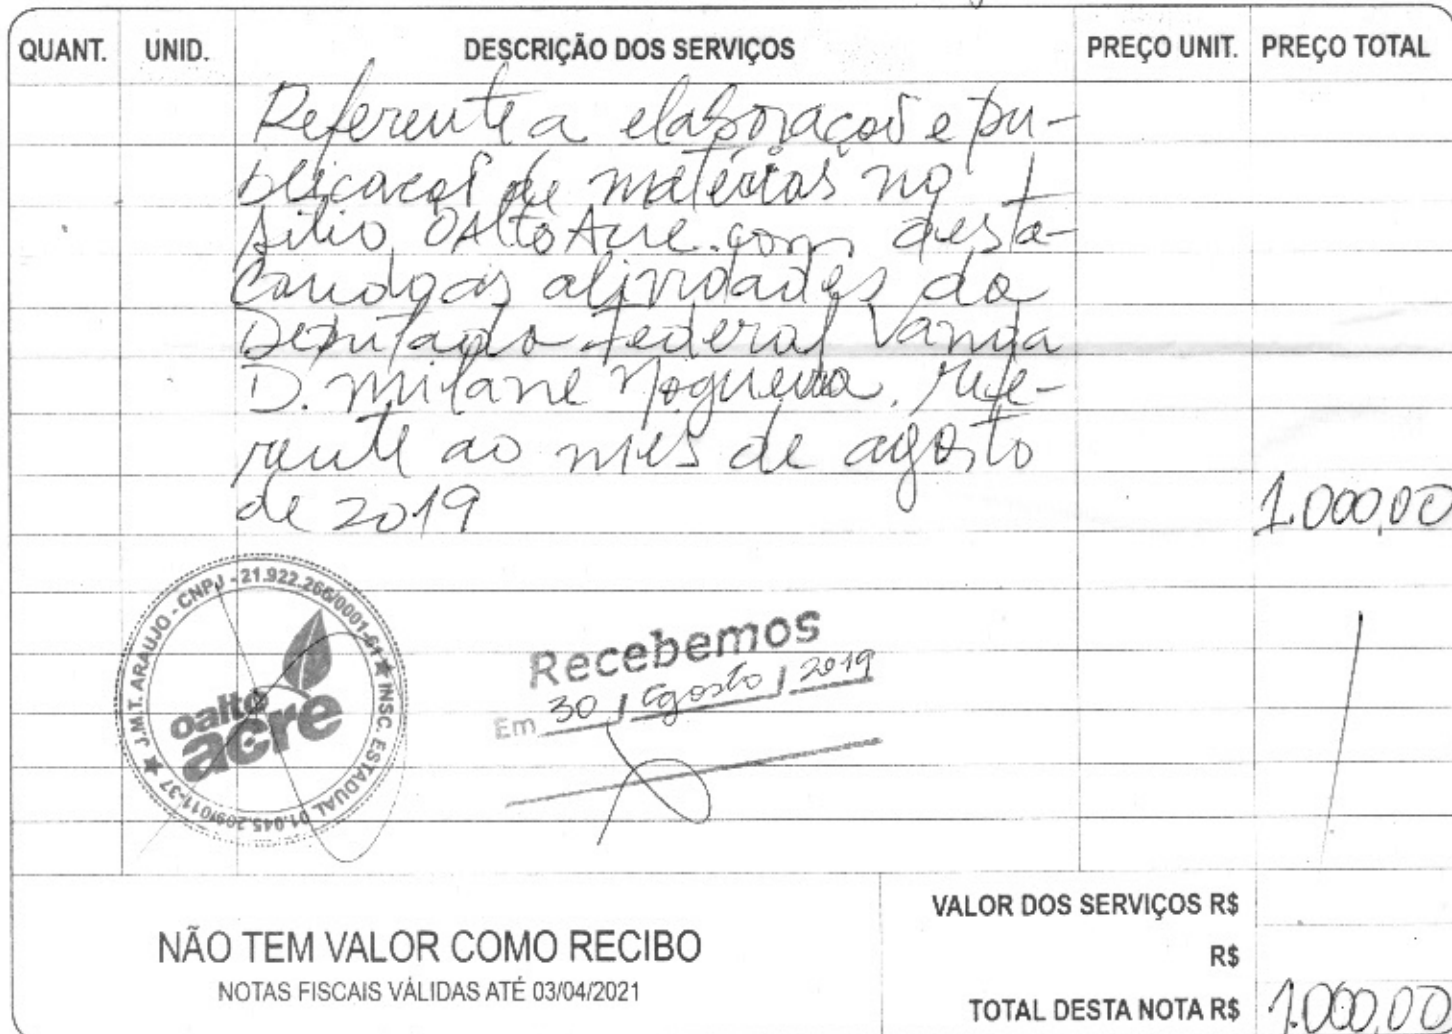 QUANT. UNID. DESCRIÇÃO DOS SERVIÇOS PREÇO UNIT. PREÇO TOTAL
Referente a elaboração e pu-
blicação de matérias no
sitio OAltoAcre.com desta-
cando as atividades da
Deputada Federal Vanda
D. Milane Nogueira, refe-
rente ao mês de agosto
de 2019 1.000,00
★ J.M.T. ARAUJO - CNPJ - 21.922.266/0001-61 ★ INSC. ESTADUAL 01.045.209/011-37
oalto
acre
Recebemos
Em 30 / agosto / 2019
VALOR DOS SERVIÇOS R$
NÃO TEM VALOR COMO RECIBO
R$
NOTAS FISCAIS VÁLIDAS ATÉ 03/04/2021
TOTAL DESTA NOTA R$ 1.000,00